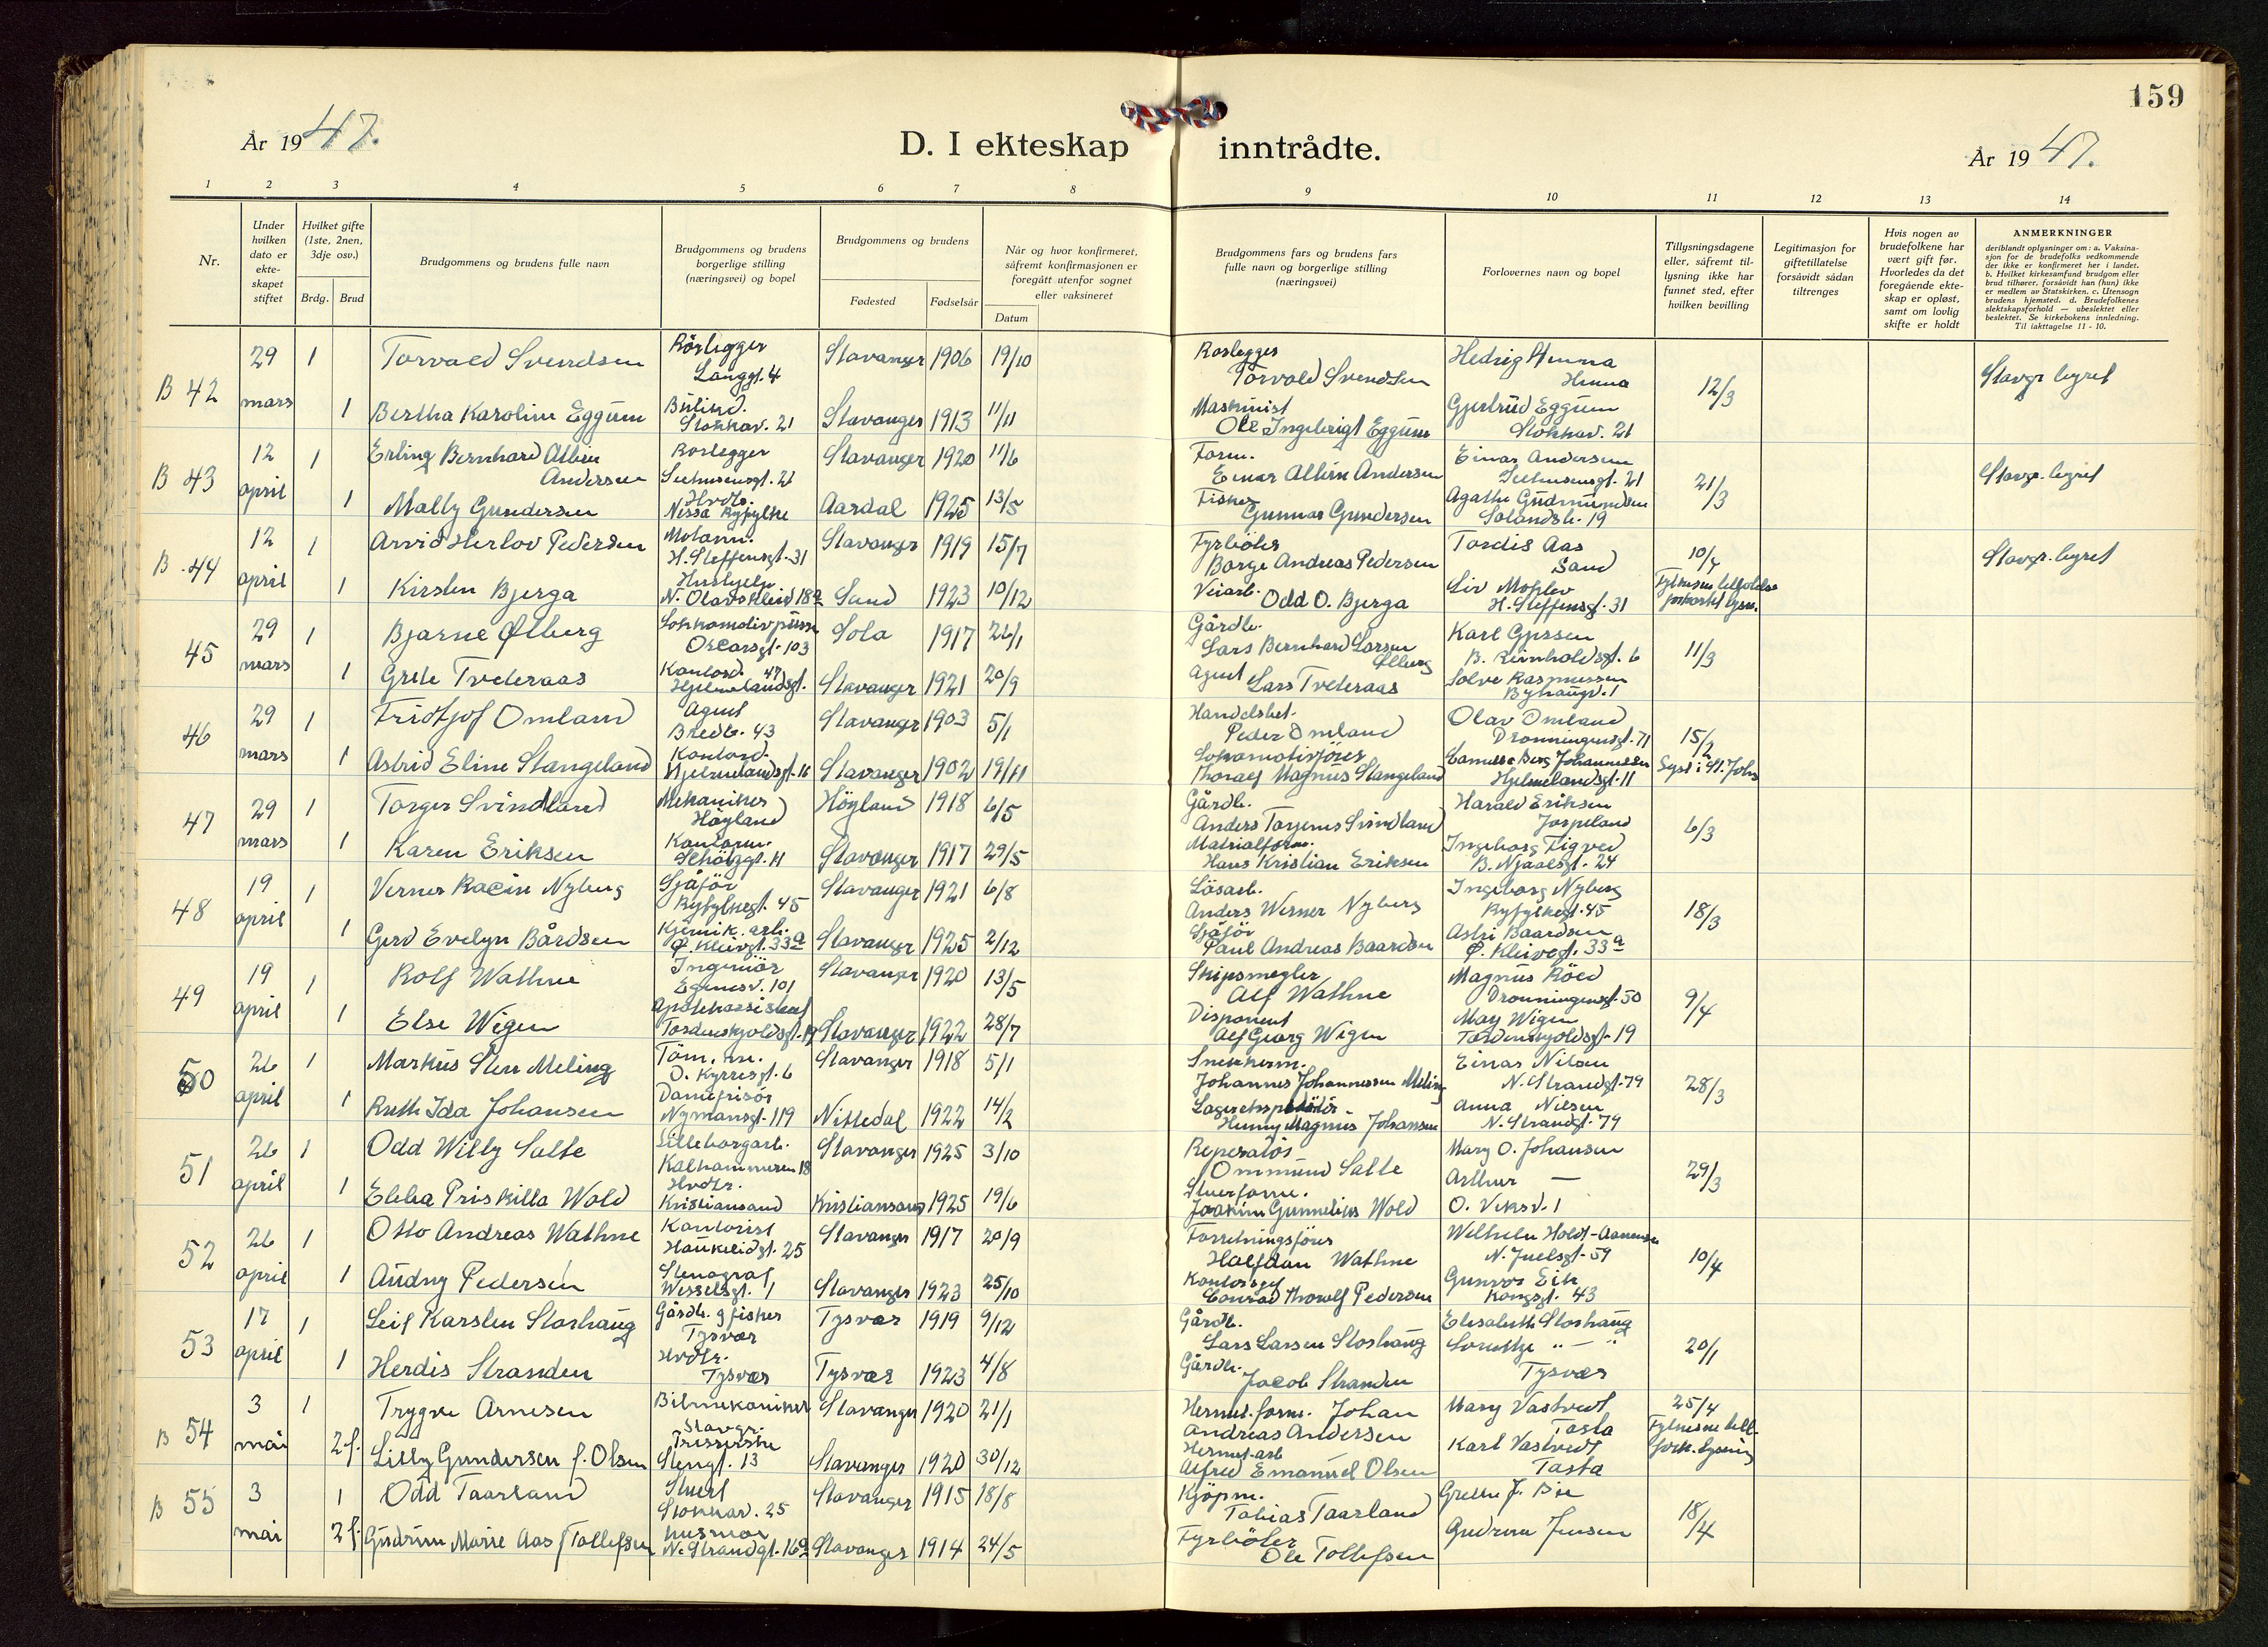 159
År 1947.
D. I ekteskap inntrådte.
År 1947.
1 2 3 4 5 6 7 8 9 10 11 12 13 14
Nr.
Under hvilken dato er ekte-skapet stiftet
Hvilket gifte (1ste, 2nen, 3dje osv.)
Brdg. Brud
Brudgommens og brudens fulle navn
Brudgommens og brudens borgerlige stilling (næringsvei) og bopel
Brudgommens og brudens
Fødested Fødselsår
Når og hvor konfirmeret, såfremt konfirmasjonen er foregått utenfor sognet eller vaksineret
Datum
Brudgommens fars og brudens fars fulle navn og borgerlige stilling (næringsvei)
Forlovernes navn og bopel
Tillysningsdagene eller, såfremt til-lysning ikke har funnet sted, efter hvilken bevilling
Legitimasjon for giftetillatelse forsåvidt sådan tiltrenges
Hvis nogen av brudefolkene har vært gift før. Hvorledes da det foregående ekte-skap er opløst, samt om lovlig skifte er holdt
ANMERKNINGER
deriblandt oplysninger om: a. Vaksina-sjon for de brudefolks vedkommende der ikke er konfirmeret her i landet. b. Hvilket kirkesamfund brudgom eller brud tilhører, forsåvidt han (hun) ikke er medlem av Statskirken. c. Utensogn brudens hjemsted. d. Brudefolkenes slektskapsforhold — ubeslektet eller beslektet. Se kirkebokens innledning. Til iakttagelse 11 - 10.
B 42 29 mars 1 Torvald Svendsen Rörlegger Langgt. 4 Stavanger 1906 19/10 Rørlegger Torvald Svendsen Hedvig Hinna Hinna 12/3 Stavgr. byret
1 Bertha Karoline Eggum Stokkav. 21 Stavanger 1913 11/11 Maskinist Ole Ingebrigt Eggum Gjertrud Eggum Stokkav. 21
B 43 12 april 1 Erling Bernhard Albin Andersen Rørlegger 21 Stavanger 1920 11/6 Form. Einar Albin Andersen Einar Andersen 21 21/3 Stavgr. byret
1 Mally Gundersen Hvdtr. Ryfylke Aardal 1925 13/5 Fisker Gunnar Gundersen Agathe Gudmundsen 19
B 44 12 april 1 Arvid Herlov Pedersen H. Steffensgt. 31 Stavanger 1919 15/7 Fyrböter Börge Andreas Pedersen Tordis Aas Sand 10/4 Stavgr. byret
1 Kirsten Bjerga Hushjelp N. Olavskleiv 18a Sand 1923 10/12 Veiarb. Odd O. Bjerga Liv H. Steffensgt. 31
45 29 mars 1 Bjarne Ølberg Oscarsgt. 103 Sola 1917 Gårdb. Lars Bernhard Larsen Ølberg Karl B. Reinholdsgt. 6 11/3
1 Grete Tvederaas Kontord. Hjelmelandsgt. 47 Stavanger 1921 20/9 Agent Lars Tvederaas Solve Rasmussen Byhaugv. 1
46 29 mars 1 Fridtjof Omland Agent Bredb. 43 Stavanger 1903 5/1 Peder Omland Olav Omland Dronningensgt. 71 15/2
1 Astrid Eline Stangeland Kontord. Hjelmelandsgt. 16 Stavanger 1902 19/11 Lokomotivförer Thoralf Magnus Stangeland Berg Johannessen Hjelmelandsgt. 11 Lyst i St. Johs
47 29 mars 1 Torger Svindland Mekaniker Höyland Höyland 1918 6/5 Gårdb. Anders Torjerus Svindland Harald Eriksen Jörpeland 6/3
1 Karen Eriksen Stavanger 1917 29/5 Hans Kristian Eriksen Ingeborg Tigved B. Njaalsgt. 24
48 19 april 1 Verner Racin Nyberg Sjåför Ryfylkegt. 45 Stavanger 1921 6/8 Lösarb. Anders Werner Nyberg Ingeborg Nyberg Ryfylkegt. 45 18/3
1 Gerd Evelyn Bårdsen Kjemik. arb. Ø. Kleivgt. 33a Stavanger 1925 2/12 Sjåför Paul Andreas Baardsen Astri Baardsen Ø. Kleivgt. 33a
49 19 april 1 Rolf Wathne Ingeniör Egenesv. 101 Stavanger 1920 13/5 Skipsmegler Alf Wathne Magnus Röed Dronningensgt. 50 9/4
1 Else Wigen Apotekassistent Tordenskjoldsgt. 19 Stavanger 1922 28/7 Disponent Alf Georg Wigen May Wigen Tordenskjoldsgt. 19
50 26 april 1 Markus Sten Meling Töm. m. O. Kyrresgt. 6 Stavanger 1918 5/1 Snekkerm. Johannes Johannessen Meling Einar Nilsen N. Strandgt. 79 28/3
1 Ruth Ida Johansen Damefrisör Nymansgt. 119 Nittedal 1922 14/2 Henny Magnus Johansen Anna Nilsen N. Strandgt. 79
51 26 april 1 Odd Willy Salte Lilleborgarb. Kalhammeren 18 Stavanger 1925 3/10 Reperatör Ommund Salte Mary O. Johansen 29/3
1 Ebba Priskilla Wold Hvdtr. Kristiansand Kristiansand 1925 19/6 Joakim Gunnelius Wold Arthur — O. Veksv. 1
52 26 april 1 Otto Andreas Wathne Kontorist Haukeligt. 25 Stavanger 1917 20/9 Forretningsförer Halfdan Wathne Wilhelm Holdt-Aanensen N. Juelsgt. 59 10/4
1 Audny Pedersen Stenograf Wesselsgt. 1 Stavanger 1923 25/10 Kontorsjef Conrad Thorolf Pedersen Gunvor Eik Kongsgt. 43
53 17 april 1 Leif Karsten Storhaug Gårdb. g fisker Tysvær Tysvær 1919 9/12 Gårdb. Lars Larsen Storhaug Elisabeth Storhaug 20/1
1 Herdis Stranden Hvdtr. Tysvær Tysvær 1923 4/8 Gårdb. Jacob Stranden Lorentze „ — „ Tysvær
B 54 3 mai 1 Trygve Arnesen Bilmekaniker Stavgr. Stavanger 1920 21/1 Hermet. form. Johan Andreas Andersen Mary Vastvedt Tasta 25/4
2 f. Lilly Gundersen f. Olsen Stengt. 13 Stavanger 1920 30/12 Hermet. arb Alfred Emanuel Olsen Karl Vastvedt Tasta
B 55 3 mai 1 Odd Taarland Stuert Stokkav. 25 Stavanger 1915 18/8 Kjöpm. Tobias Taarland Grethe J. 18/4
2 f. Gudrun Marie Aas f Tollefsen Husmor N. Strandgt. 16a Stavanger 1914 24/5 Fyrböter Ole Tollefsen Gudrun Jensen